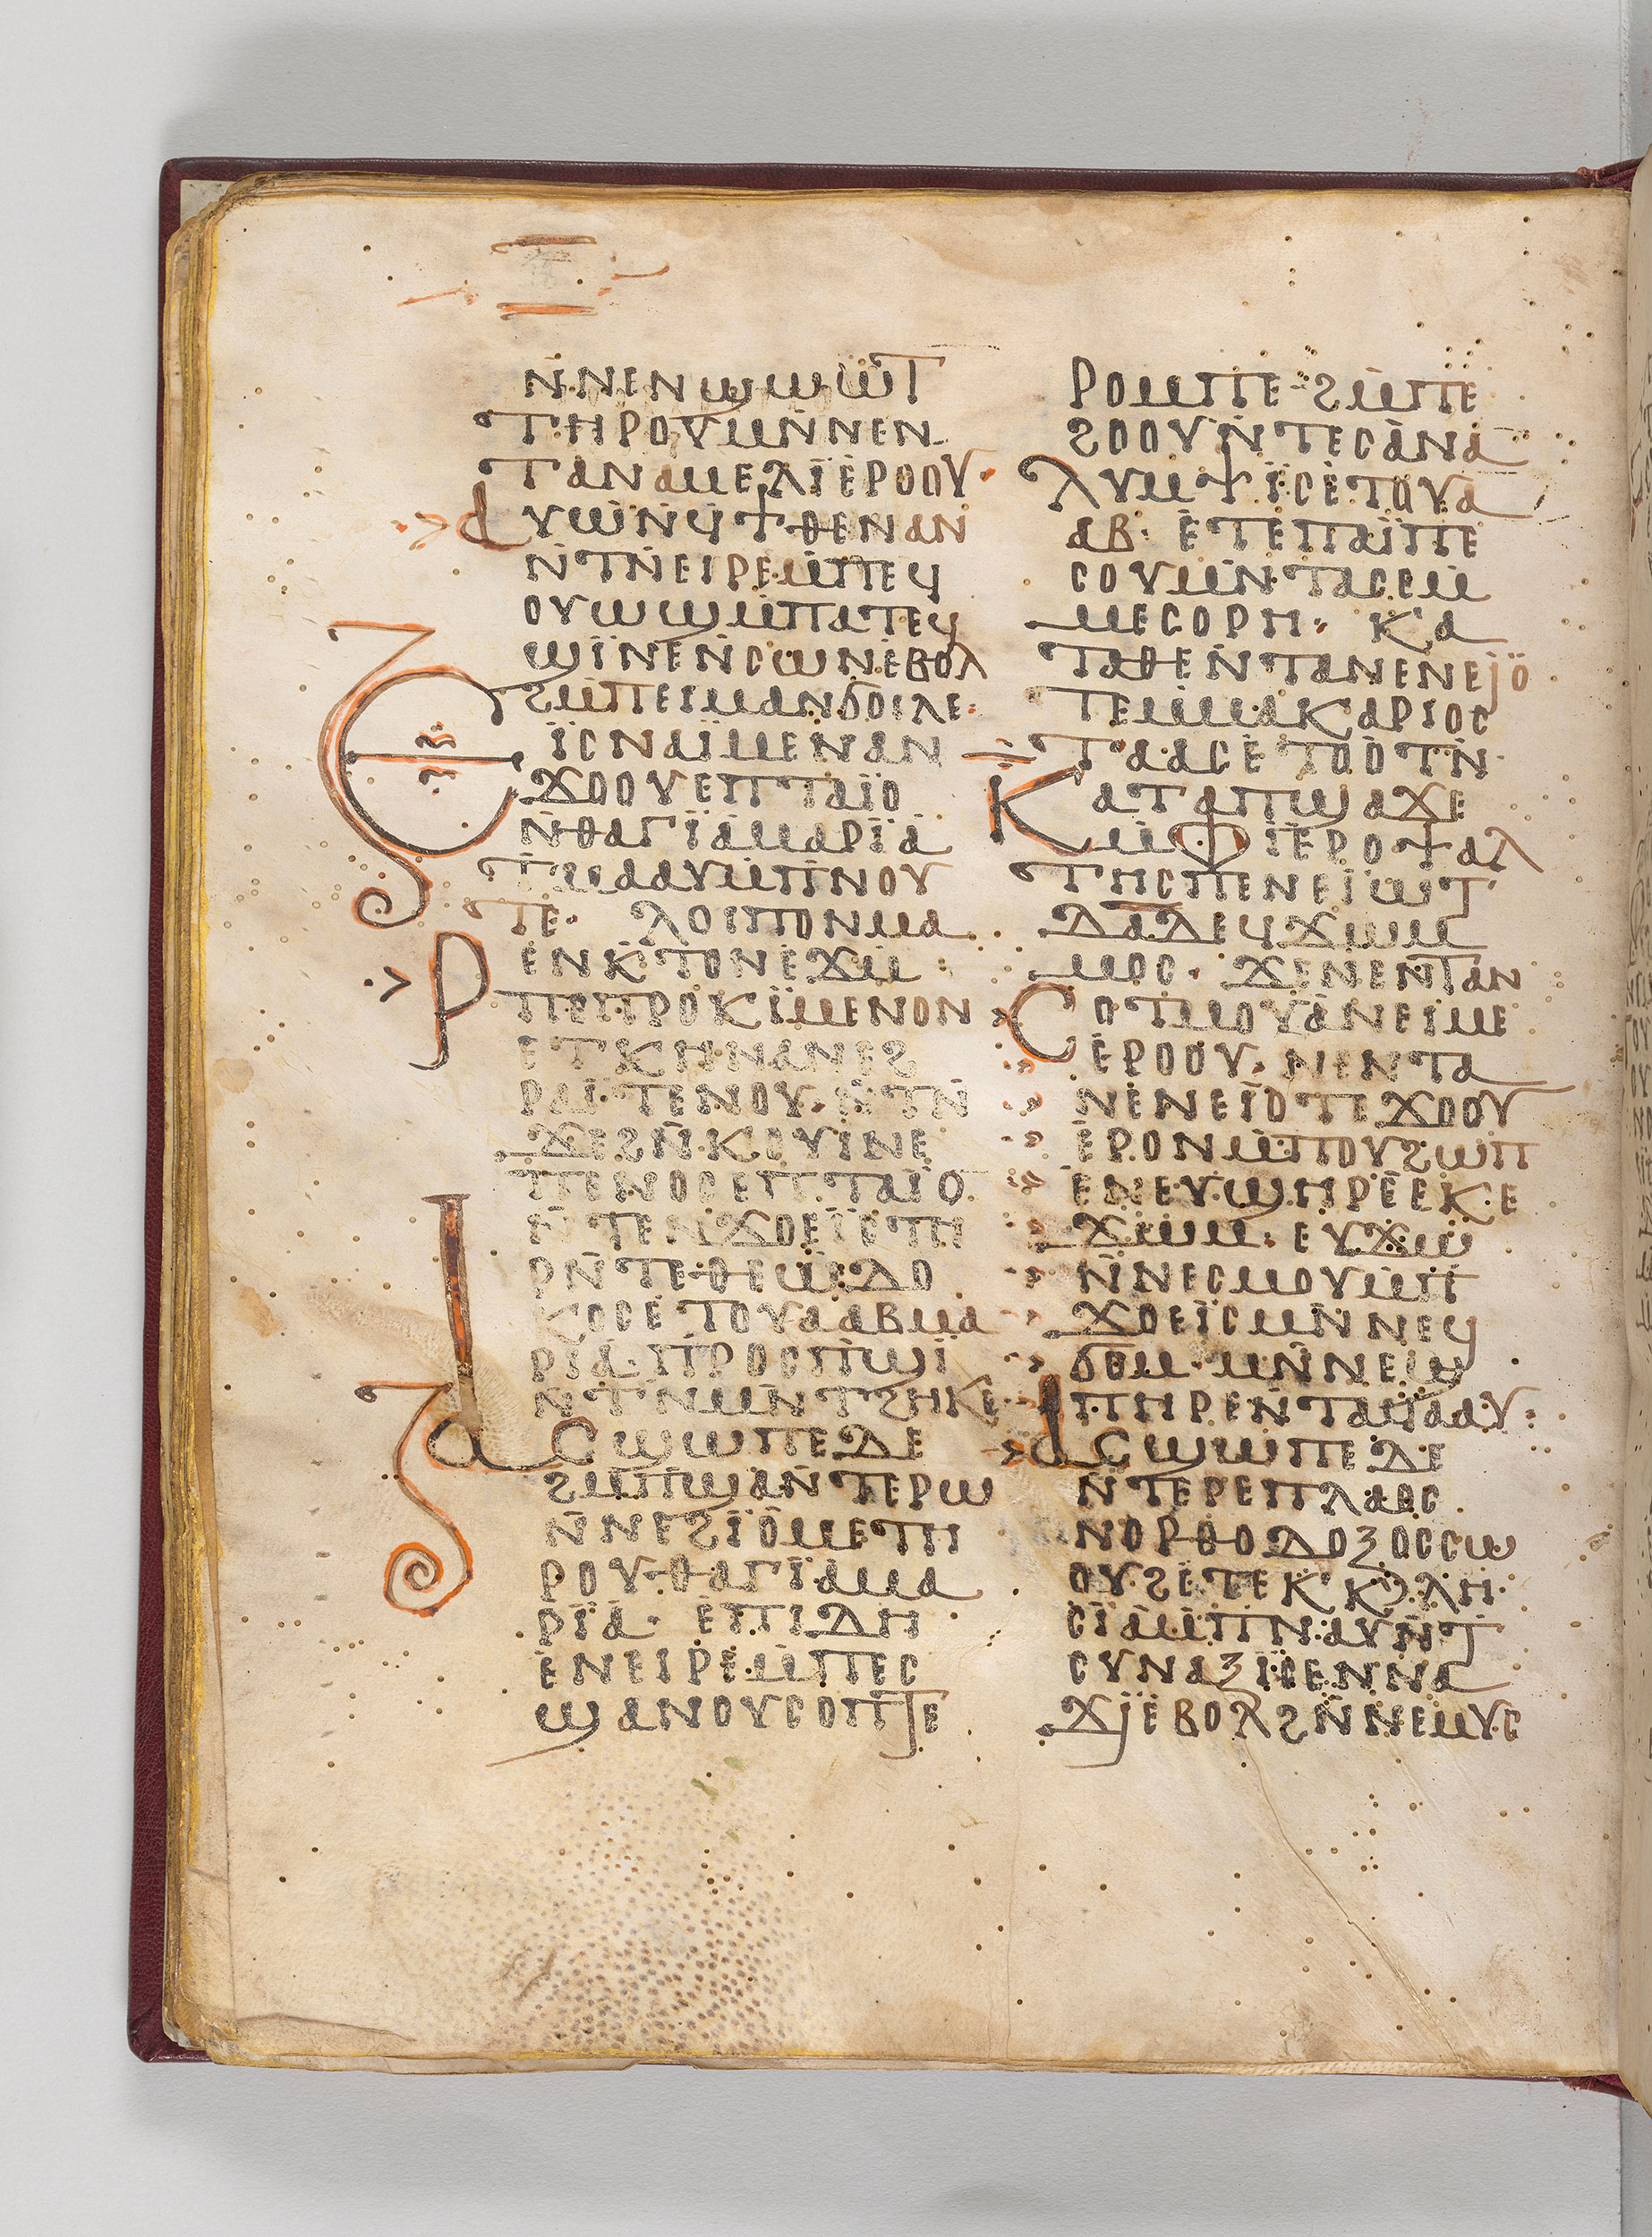 ⲛ̄ⲛⲉⲛϣⲱⲱⲧ
ⲧⲏⲣⲟⲩⲙⲛ̄ⲛⲉⲛ
ⲧⲁⲛⲁⲙⲉⲗⲓ̈ⲉ̇ⲣⲟⲟⲩ·
ⲁⲩⲱⲛ̄ϥϯⲑⲉⲛⲁⲛ
ⲛ̄ⲧⲛ̄ⲉⲓⲣⲉⲙ̄ⲡⲉϥ
ⲟⲩⲱϣⲙ̄ⲡⲁⲧⲉϥ
ϣⲓ̈ⲛⲉⲛ̄ⲥⲱⲛⲉ̇ⲃⲟⲗ
ϩⲙ̄ⲡⲉⲓⲙⲁⲛϭⲟⲓⲗⲉ·
Ⲉⲓ̈ⲥⲛⲁⲓ̈ⲙⲉⲛⲁⲛ
ϫⲟⲟⲩⲉⲡⲧⲁⲓ̈ⲟ
ⲛ̄ⲑⲁⲅⲓ̈ⲁ̇ⲙⲁⲣⲓ̈ⲁ̇
ⲧⲙⲁⲁⲩⲙ̄ⲡⲛⲟⲩ
ⲧⲉ· ⲗⲟⲓⲡⲟⲛⲙⲁ
ⲣⲉⲛⲕ̄ⲧⲟⲛⲉ̇ϫⲙ̄
ⲡⲉⲡⲣⲟⲕⲓ̈ⲙⲉⲛⲟⲛ
ⲉⲧⲕⲏⲛⲁⲛⲉϩ
ⲣⲁⲓ̈ⲧⲉⲛⲟⲩ· ⲛ̄ⲧⲛ̄
ϫⲉϩⲛ̄ⲕⲟⲩⲓⲛⲉ
ⲡⲉⲛⲟⲥⲉⲡⲧⲁⲓ̈ⲟ
ⲛ̄ⲧⲉⲛϫⲟⲉⲓ̈ⲥⲧⲏ
ⲣⲛ̄ⲧⲉⲑⲉⲱ̇ⲇⲟ
ⲕⲟⲥⲉ̇ⲧⲟⲩⲁⲁⲃⲙⲁ
ⲣⲓ̈ⲁ̇· ⲡⲣⲟⲥⲡϣⲓ̈
ⲛ̄ⲧⲛ̄ⲙⲛ̄ⲧϩⲏⲕⲉ·
ⲁⲥϣⲱⲡⲉⲇⲉ
ϩⲙ̄ⲡϣⲁⲛ̄ⲧⲉⲣⲱ
ⲛ̄ⲛⲉϩⲓ̈ⲟ̇ⲙⲉⲧⲏ
ⲣⲟⲩⲑⲁⲅⲓ̈ⲁ̇ⲙⲁ
ⲣⲓ̈ⲁ̇· ⲉ̇ⲡⲓⲇⲏ
ⲉ̇ⲛⲉⲓⲣⲉⲙ̄ⲡⲉⲥ
ϣⲁⲛⲟⲩⲥⲟⲡⲧⲉ
ⲣⲟⲙⲡⲉ· ϩⲙ̄ⲡⲉ
ϩⲟⲟⲩⲛ̄ⲧⲉⲥⲁ̇ⲛⲁ
ⲗⲩⲙⲯⲓ̈ⲥⲉ̇ⲧⲟⲩⲁ
ⲁⲃ· ⲉ̇ⲧⲉⲡⲁⲓ̈ⲡⲉ
ⲥⲟⲩⲙⲛ̄ⲧⲁⲥⲉⲙ̄
ⲙⲉⲥⲟⲣⲏ· ⲕⲁ
ⲧⲁⲑⲉⲛ̄ⲧⲁⲛⲉⲛⲉⲓ̈ⲟ
ⲧⲉⲙ̄ⲙⲁⲕⲁⲣⲓⲟⲥ
ⲧⲁⲁⲥⲉ̇ⲧⲟⲟ̇ⲧⲛ̄·
ⲕⲁⲧⲁⲡϣⲁϫⲉ
ⲙ̄ⲫⲓ̈ⲉ̇ⲣⲟⲯⲁⲗ
ⲧⲏⲥⲡⲉⲛⲉⲓ̈ⲱⲧ
ⲇⲁ̄ⲇⲉϥϫⲱⲙ̄
ⲙⲟⲥ· ϫⲉⲛⲉⲛⲧⲁⲛ
ⲥⲟⲧⲙⲟⲩⲁ̇ⲛⲉⲓⲙⲉ
ⲉ̇ⲣⲟⲟⲩ· ⲛⲉⲛⲧⲁ
ⲛⲉⲛⲉⲓ̈ⲟⲧⲉϫⲟⲟⲩ
ⲉ̇ⲣⲟⲛⲙ̄ⲡⲟⲩϩⲱⲡ
ⲉ̇ⲛⲉⲩϣⲏⲣⲉⲉ̇ⲕⲉ
ϫⲱⲙ· ⲉⲩϫⲱ̇
ⲛ̄ⲛⲉⲥⲙⲟⲩⲙ̄ⲡ̄
ϫⲟⲉⲓ̈ⲥⲙⲛ̄ⲛⲉϥ
ϭⲟⲙ· ⲙⲛ̄ⲛⲉϥϣ
ⲡⲏⲣⲉⲛ̄ⲧⲁϥⲁⲁⲩ:
ⲁⲥϣⲱⲡⲉⲇⲉ
ⲛ̄ⲧⲉⲣⲉⲡⲗⲁⲟⲥ
ⲛⲟⲣⲑⲟⲇⲟⲝⲟⲥⲥⲱ
ⲟⲩϩⲉ̇ⲧⲉⲕⲕⲗⲏ
ⲥⲓ̈ⲁ̇ⲙ̄ⲡⲛⲁⲩⲛ̄ⲧ
ⲥⲩⲛⲁⲝⲓ̈ⲥⲉⲛⲛⲁ
ϫⲓ̈ⲉ̇ⲃⲟⲗϩⲛ̄ⲛⲉⲙⲩⲥ